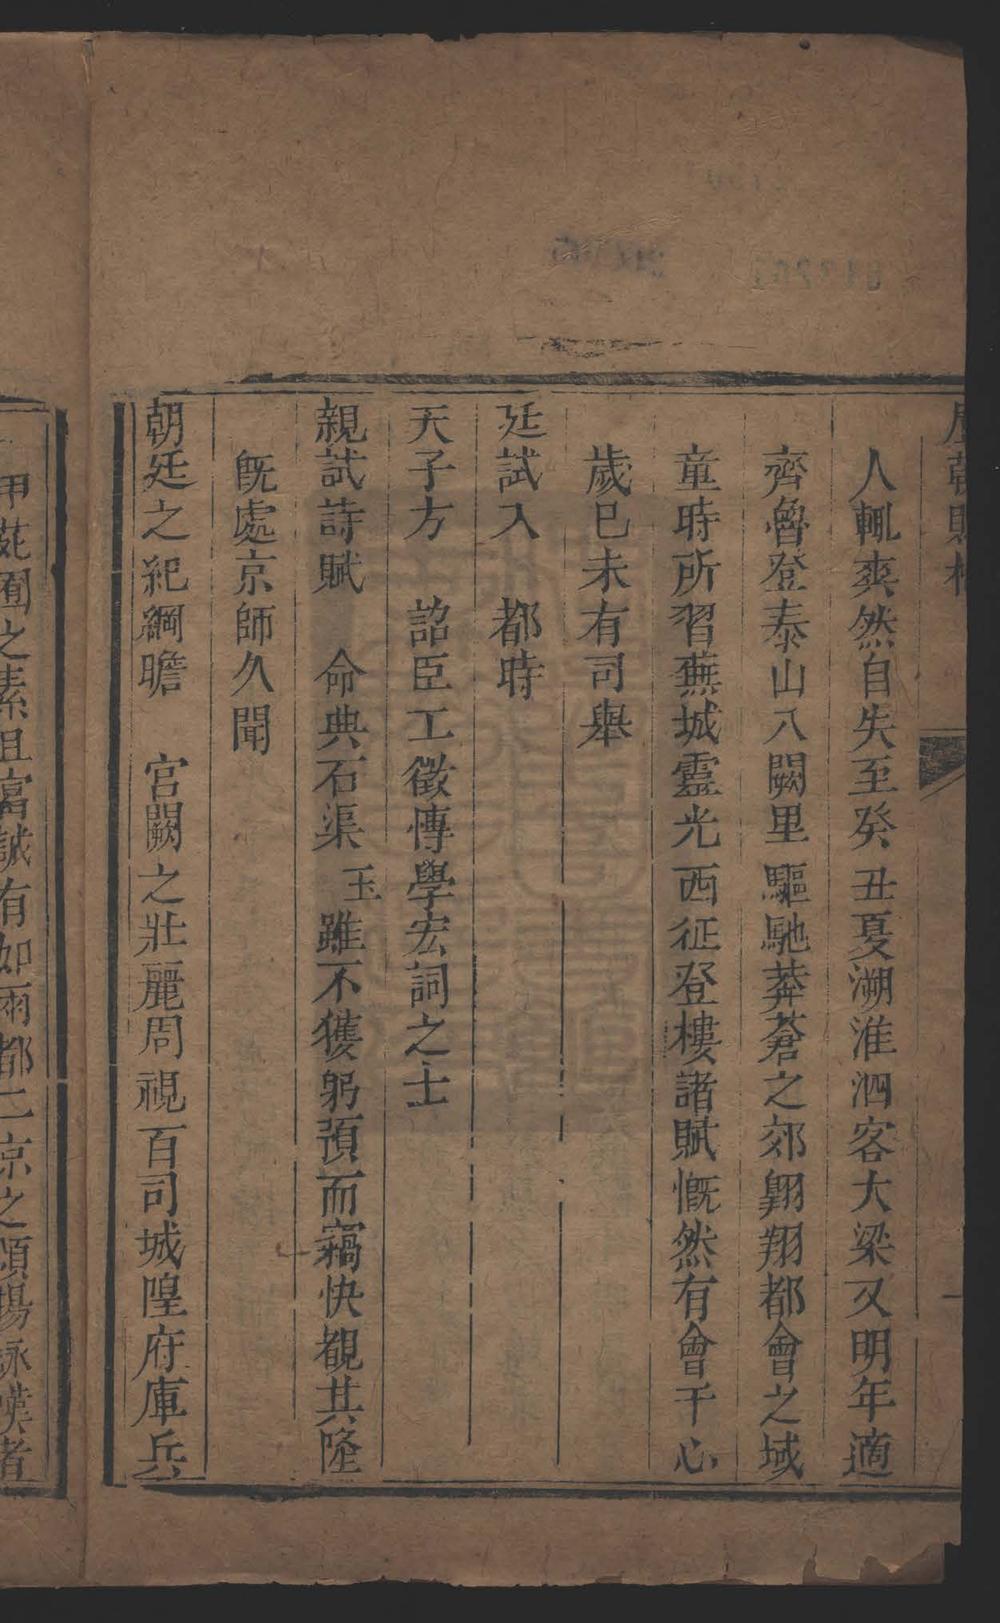 歷朝賦格
人輒爽然自失至癸丑夏溯淮泗客大梁又明年適
齊魯登泰山入闕里驅馳莽蒼之郊翺翔都會之域
童時所習蕪城靈光西征登樓諸賦慨然有會于心
歲已未有司舉
廷試入 都時
天子方 詔臣工徵博學宏詞之士
親試詩賦 命典石渠玉雖不獲躬預而竊快覩其隆
旣處京師久聞
朝廷之紀綱瞻 宮闕之壯麗周視百司城隍府庫兵
甲苑囿之素且富誠有如兩都二京之頌揚詠嘆者